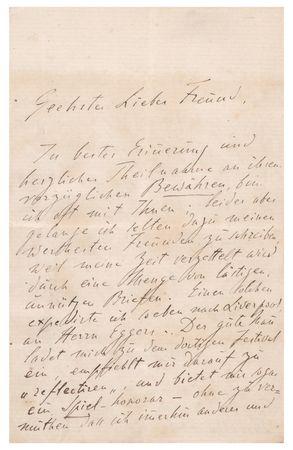 Geehrter Lieber Freund,
In bester Erinerung und
herzlicher Theilnahme an ihren
vorzüglichen Bewahren, bin
ich oft mit Ihnen. leider aber
gelange ich selten dazu meinen
werthesten Freunden zu schreiben
weil meine Zeit verzettelt wird
durch eine Menge von lästigen,
unnützen Briefen. Einen solchen
expedirte ich soeben nach Liverpool
an Herrn Eggers. Der gute Man
ladet mich zu dem dortigen Festival
ein, empfiehlt mir darauf zu
„reflectiren", und bietet mir sogar
ein Spiel-honorar - ohne zu ver-
muthen dass ich imerhin anderes und